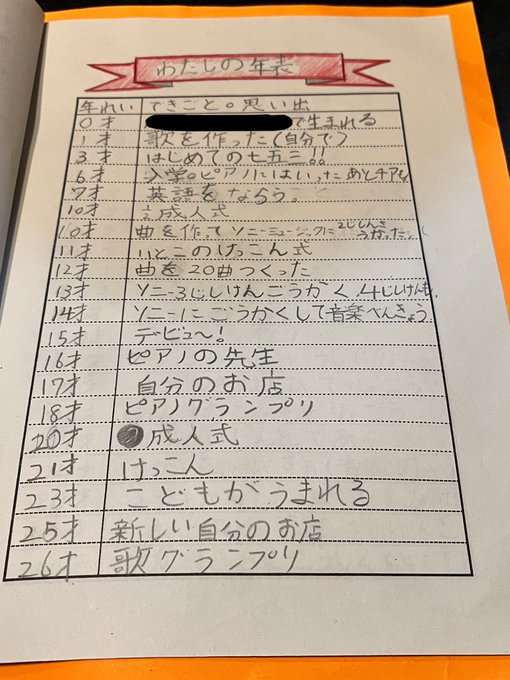 わたしの年表
年れい できごと。思い出
0才 で生まれる
1才 歌を作った(自分で)
3才 はじめての七五三!!
6才 入学。ピアノにはいった あとチアも
7才 英語をならう。
10才 ½成人式
10才 曲を作ってソニーミュージックに2じしんさうかった
11才 いとこのけっこん式
12才 曲を20曲つくった
13才 ソニー3じしけんごうかく、4じしけんも、
14才 ソニーにごうかくして音楽べんきょう
15才 デビュ〜!
16才 ピアノの先生
17才 自分のお店
18才 ピアノグランプリ
20才 成人式
21才 けっこん
23才 こどもがうまれる
25才 新しい自分のお店
26才 歌グランプリ